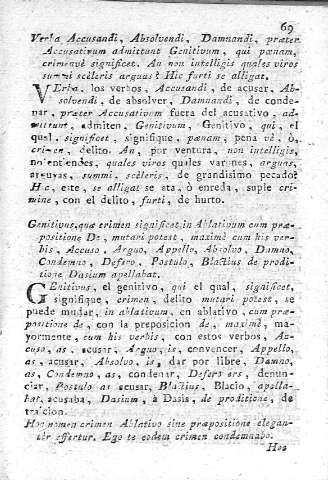 69
Verba Accusandi, Absolvendi, Damnandi, præter
Accusativum admittunt Genitivum, qui pœnam,
crimenvè significet. An non intelligis quales viros
summi scèleris arguas? Hic furti se alligat.
VErba, los verbos, Accusandi, de acusar, Ab-
solvendi, de absolver, Damnandi, de conde-
nar, præter Accusativum fuera del acusativo, ad-
mittunt, admiten, Genitivum, Genitivo, qui, el
qual, significet, signifique, pœnam, pena vè, ò,
crimen, delito. An, por ventura, non intelligis,
no entiendes, quales viros quales varones, arguas,
arguyas, summi, scèleris, de grandisimo pecado?
Hic, este, se alligat se ata, ò enreda, suple cri-
mine, con el delito, furti, de hurto.
Genitivus, quæ crimen significet, in Ablativum cum præ-
positione De, mutari potest, maximè cum his ver-
bis, Accuso, Arguo, Appello, Absolvo, Damno,
Condemno, Defero, Postulo, Blactius de prodi-
tione Dasium apellabat.
GEnitivus, el genitivo, qui el qual, significet,
signifique, crimen, delito mutari potest, se
puede mudar, in ablativum, en ablativo, cum præ-
positione de, con la preposicion de, maximè, ma-
yormente, cum his verbis, con estos verbos, Ac-
cuso, as, acusar, Arguo, is, convencer, Appello,
as, acusar, Absolvo, is, dar por libre, Damno,
as, Condemno, as, condenar, Defero ers, denun-
ciar, Postulo as acusar, Blactius, Blacio, apella-
bat, acusaba, Dasium, à Dasis, de proditione, de
traicion.
Hoc nomen crimen Ablativo sine præpositione elegan-
ter effertur. Ego te eodem crimen condemnabo.
Hoc